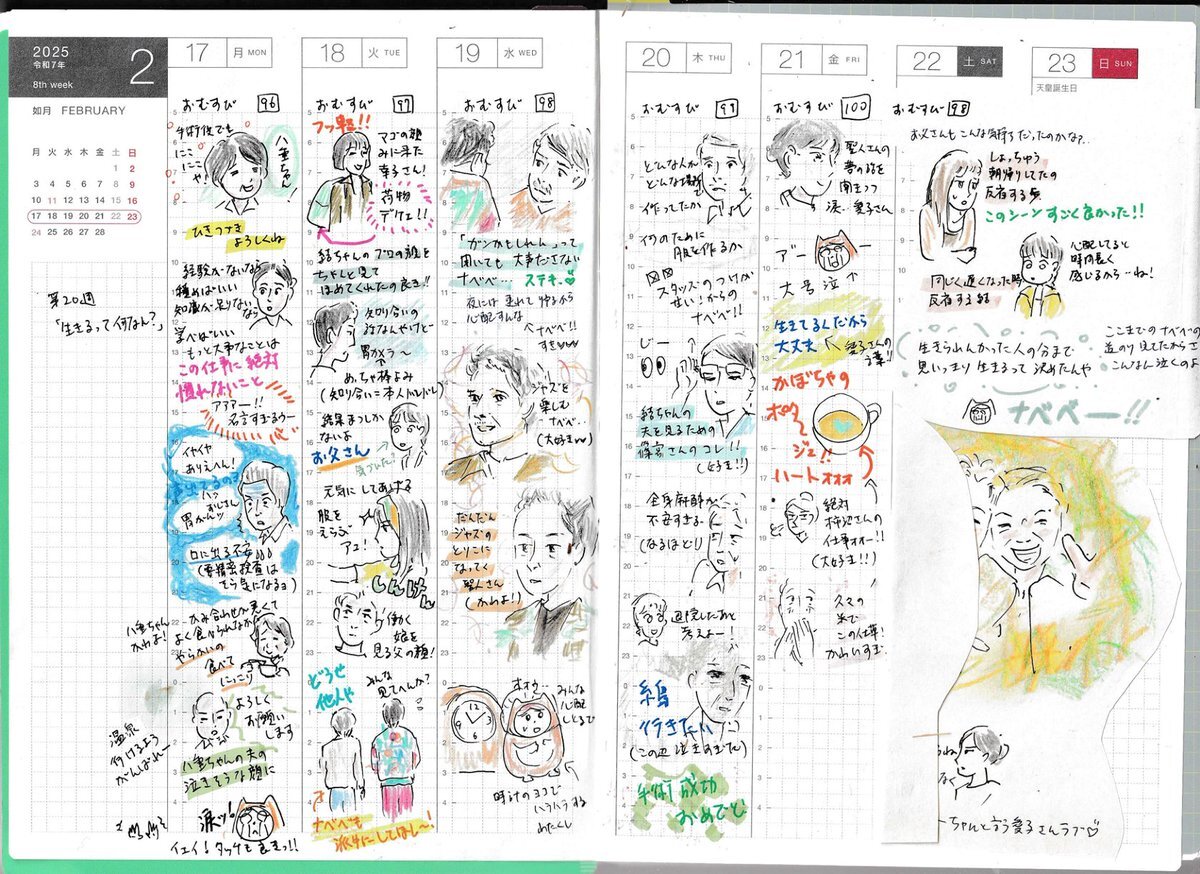 2025
令和7年
8th week
2
如月 FEBRUARY
月 火 水 木 金 土 日
1 2
3 4 5 6 7 8 9
10 11 12 13 14 15 16
17 18 19 20 21 22 23
24 25 26 27 28
第20週
「生きるって何なん?」
17 月 MON
おむすび 96
手術後でも
にこ
にこ
や!
八重ちゃん
ひきつづき
よろしくね
経験がないなら
積めばいい
知識が足りないなら
学べばいい
もっと大事なことは
この仕事に絶対
慣れないこと
アアアー!!
名言すぎるうー
イヤイヤ
ありえへん!
声出てるのよ
ハッ
おじさん
胃がんッ
口に出る不安
(要精密検査は
そら気になるョ)
かみ合わせが悪くて
よく食べられなかった
やらかいの
食べて
にっこり
八重ちゃん
かわよ!
よろしく
お願い
します
温泉
行けるよう
がんばれー
八重ちゃんの夫の
泣きそうな顔に
涙ッ!
イェイ!タッチも良きっ!!
18 火 TUE
おむすび 97
フッ軽!!
マゴの顔
みに来た
幸子さん!
荷物
デケェ!!
結ちゃんのプロの顔を
ちゃんと見て
ほめてくれたの良き!!
知り合いの
話なんやけど
胃カメラ〜
めっちゃ棒よみ
(知り合い=本人バレバレ)
結果まつしか
ないよ
お父さん
気づいた!
元気にしてあげる
服を
えらぶ
アユ!
しんけん
働く
娘を
見る父の顔!
どうせ
他人や
みんな
見てへんか?
ナベベも
派手にしてほし〜!
19 水 WED
おむすび 98
「ガンかもしれん」って
聞いても大事ださない
ナベベ…ステキ
夜には
心配すんな
ナベベ!!
すき
ジャズを
楽しむ
ナベベ…
(大好き)
だんだん
ジャズの
とりこに
なってく
聖人さん
(かわよ!)
みんな
心配
しとるで
時計のヨコで
ハラハラする
わたくし
20 木 THU
おむすび 99
どんな人が
どんな場所で
作ってたか
何のために
服を作るか
スタッズのつけが
せい!からの
ナベベ!!
じー
結ちゃんの
夫を見るための
篠宮さんのコレ!!
(好き!!)
全身麻酔が
不安すぎる
(なるほど!)
退院したあと
考えよー!
糸島
行きたい
(この辺泣きすぎた)
手術成功
おめでと
21 金 FRI
おむすび 100
聖人さんの
夢の話を
聞きつつ
涙…愛子さん
アー
大号泣
生きてるんだから
大丈夫
愛子さんの
言葉!!
かぼちゃの
ポター
ジュ!!
ハートォォォ
絶対
柿沼さんの
仕事ォー!!
(大好き!!)
久々の
米で
この仕事!
かわいすぎ
22 土 SAT
23 日 SUN
天皇誕生日
おむすび 98
お父さんもこんな気持ちだったのかな?
しょっちゅう
朝帰りしてたの
反省する歩
このシーンすごく良かった!!
同じく遅くなった時
反省する結
心配してると
時間長く
感じるから…ね!
生きられんかった人の分まで
思いっきり生きるって決めたんや
ここまでのナベベの
道のり見てたからさ
こんなん泣くのよ
ナベベー!!
ーちゃんと言う愛子さんラブ♡